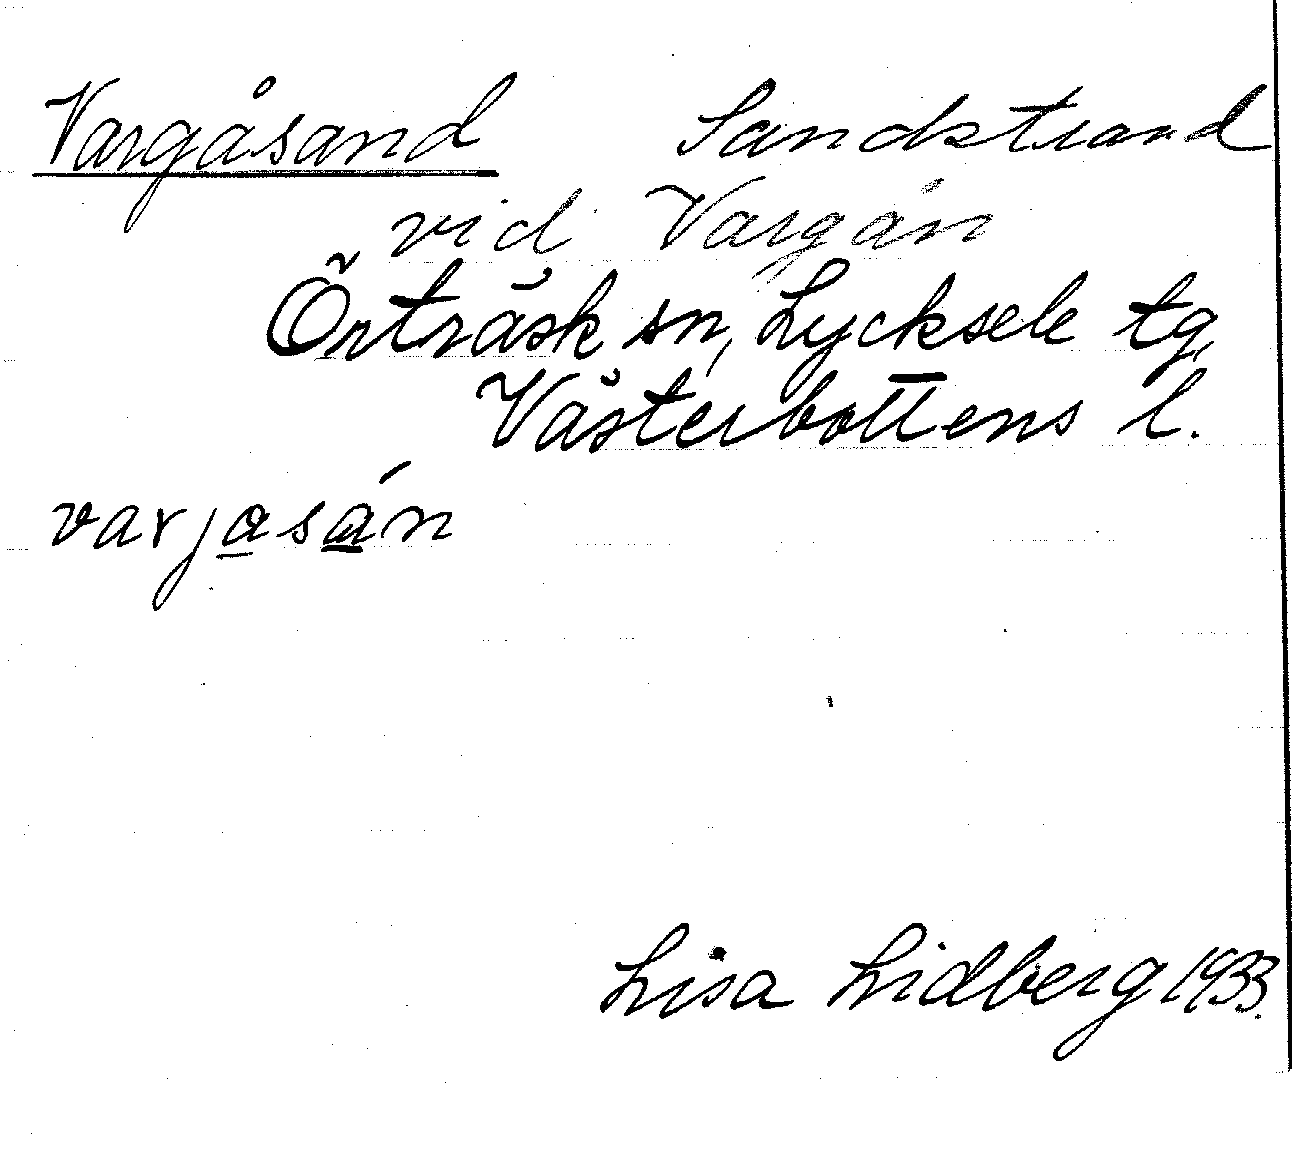 Vargåsand Sandstrand
vid Vargån
Örträsk sn, Lycksele tg,
Västerbottens l.
varjasán
Lisa Lidberg 1933.